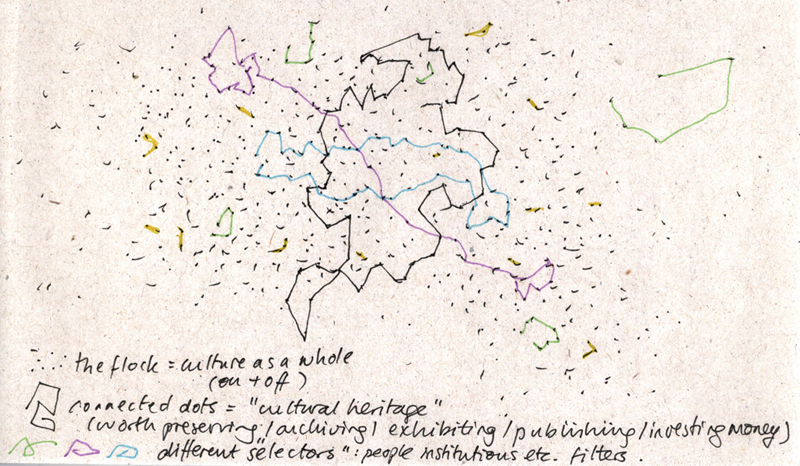 the flock = culture as a whole
(on + off)
connected dots = "cultural heritage"
(worth preserving / archiving / exhibiting / publishing / investing money)
different "selectors": people institutions etc. filters.